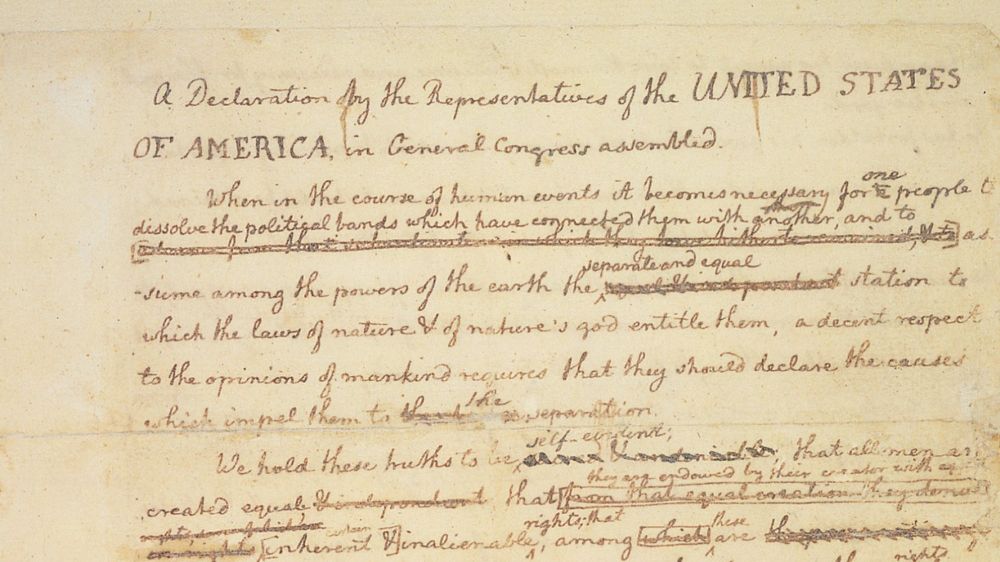 A Declaration by the Representatives of the UNITED STATES
OF AMERICA, in General Congress assembled.
When in the course of human events it becomes necessary for
one
people t
dissolve the political bands which have connected them with another, and to
as
separate and equal
-sume among the powers of the earth the
station to
which the laws of nature & of nature's god entitle them, a decent respect
to the opinions of mankind requires that they should declare the causes
which impel them to
the
separation.
self-evident;
We hold these truths to be
, that all men ar
they are endowed by their creator with
created equal & independent that from that equal creation they derive
rights; that
these
inherent & inalienable, among which are
rights